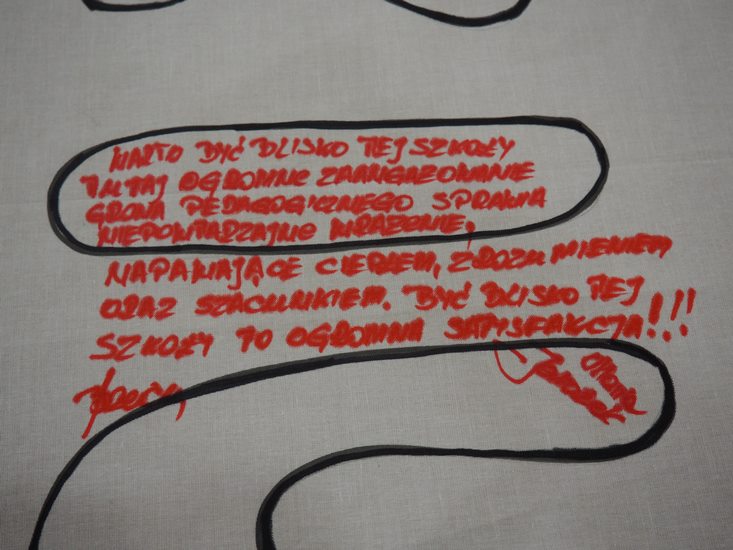 WARTO BYĆ BLISKO TEJ SZKOŁY
TUTAJ OGROMNE ZAANGAŻOWANIE
GRONA PEDAGOGICZNEGO SPRAWIA
NIEPOWTARZALNE WRAŻENIE,
NAPAWAJĄCE CIEPŁEM, ZROZUMIENIEM
ORAZ SZACUNKIEM. BYĆ BLISKO TEJ
SZKOŁY TO OGROMNA SATYSFAKCJA!!!